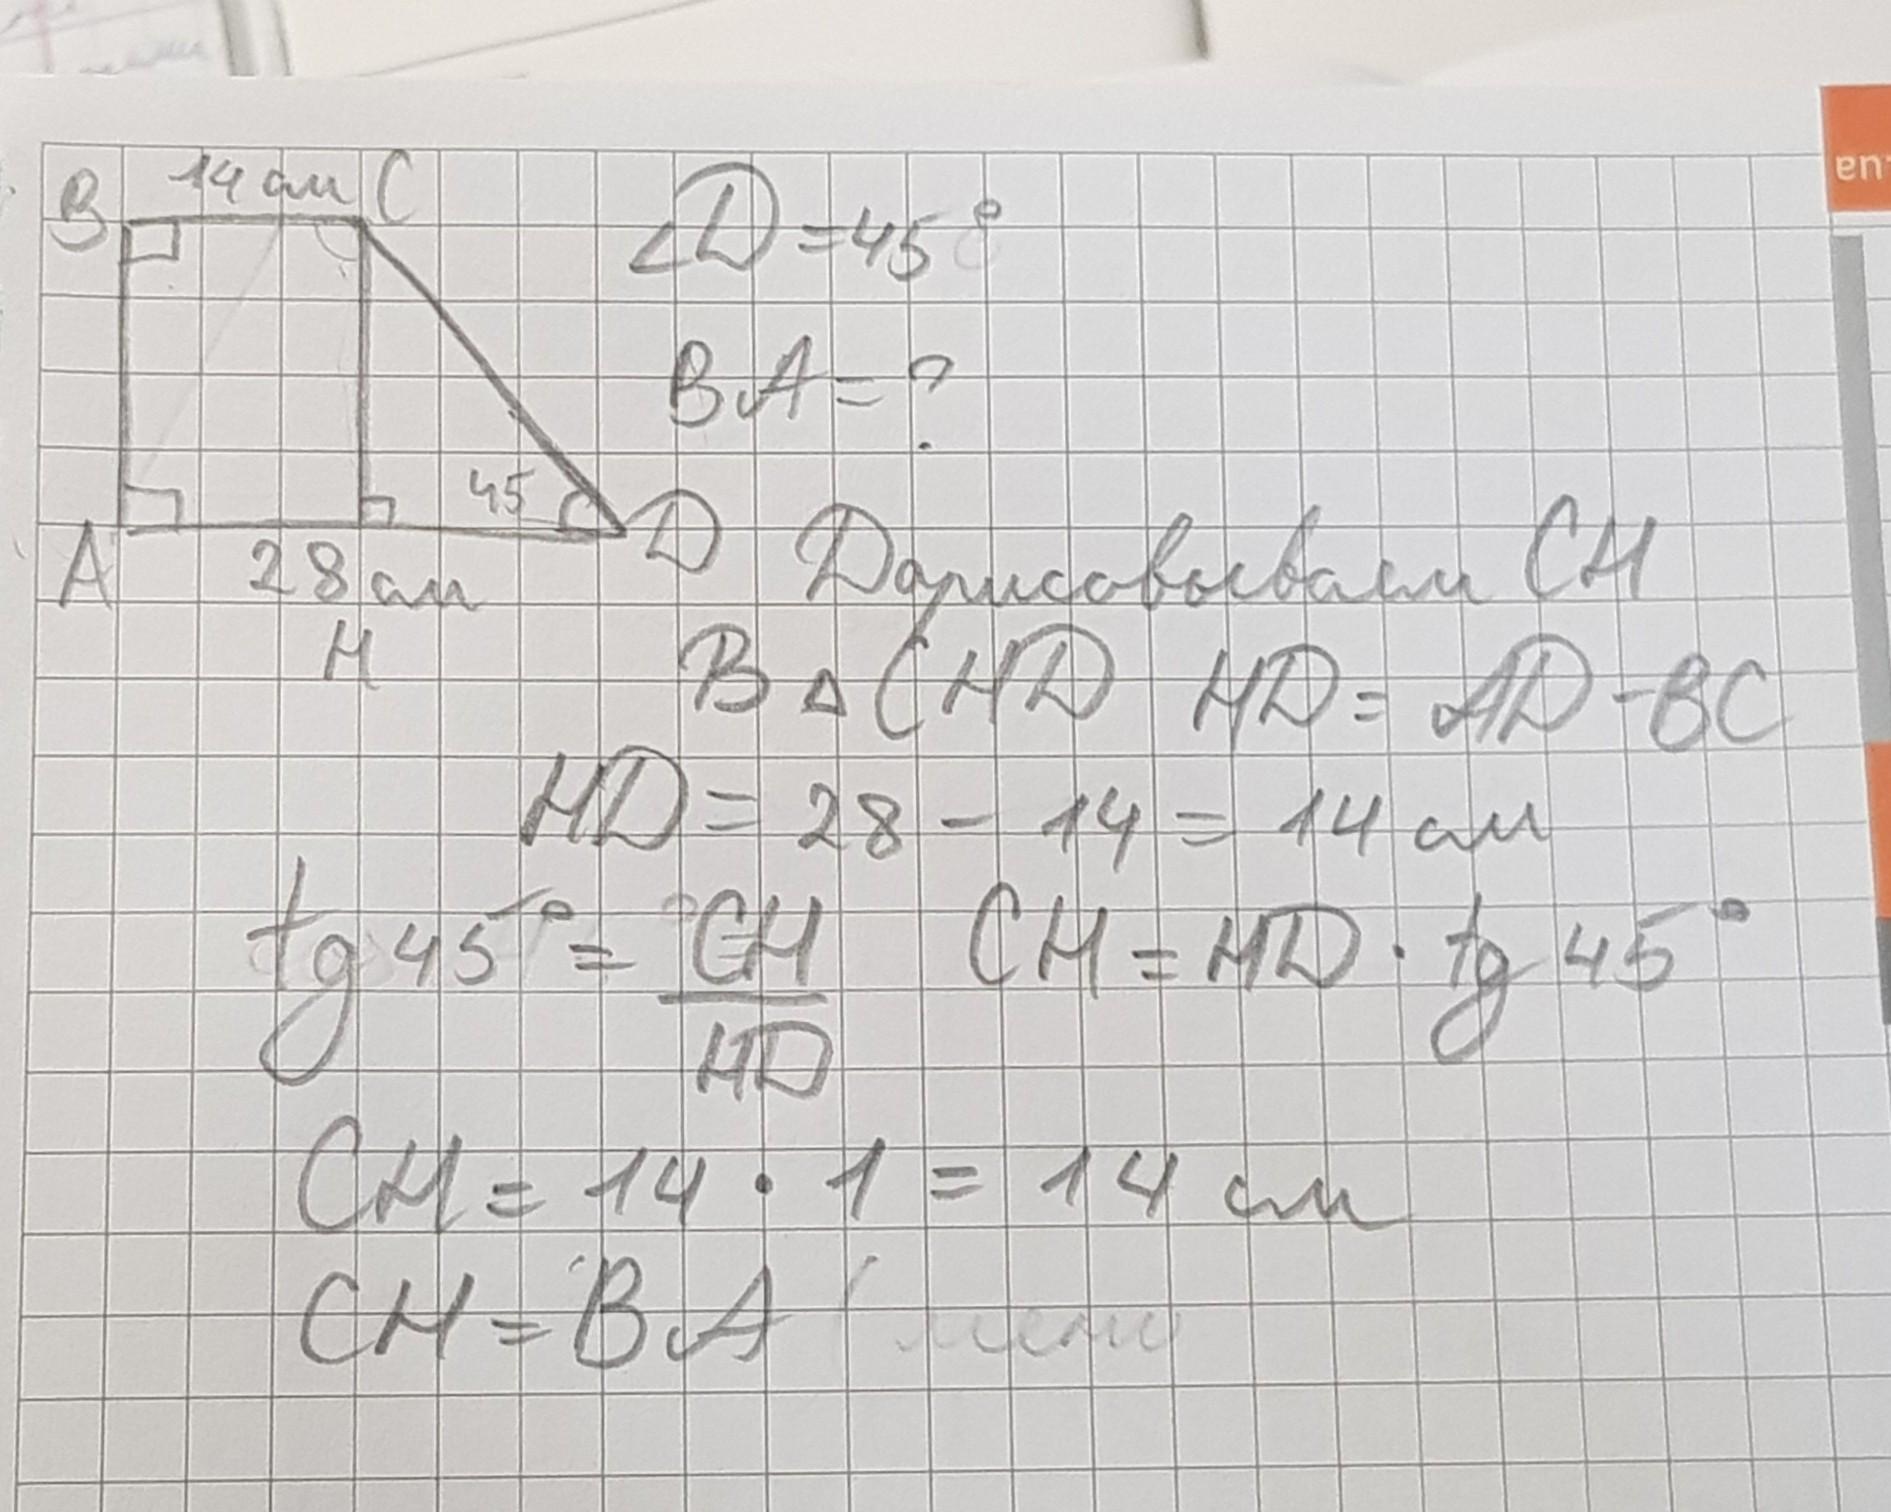 B 14 см C
∠D = 45°
BA = ?
45
A 28 см D
H
Дорисовываем CH
В △ CHD HD = AD - BC
HD = 28 - 14 = 14 см
tg 45° = CH / HD CH = HD · tg 45°
CH = 14 · 1 = 14 см
CH = BA (